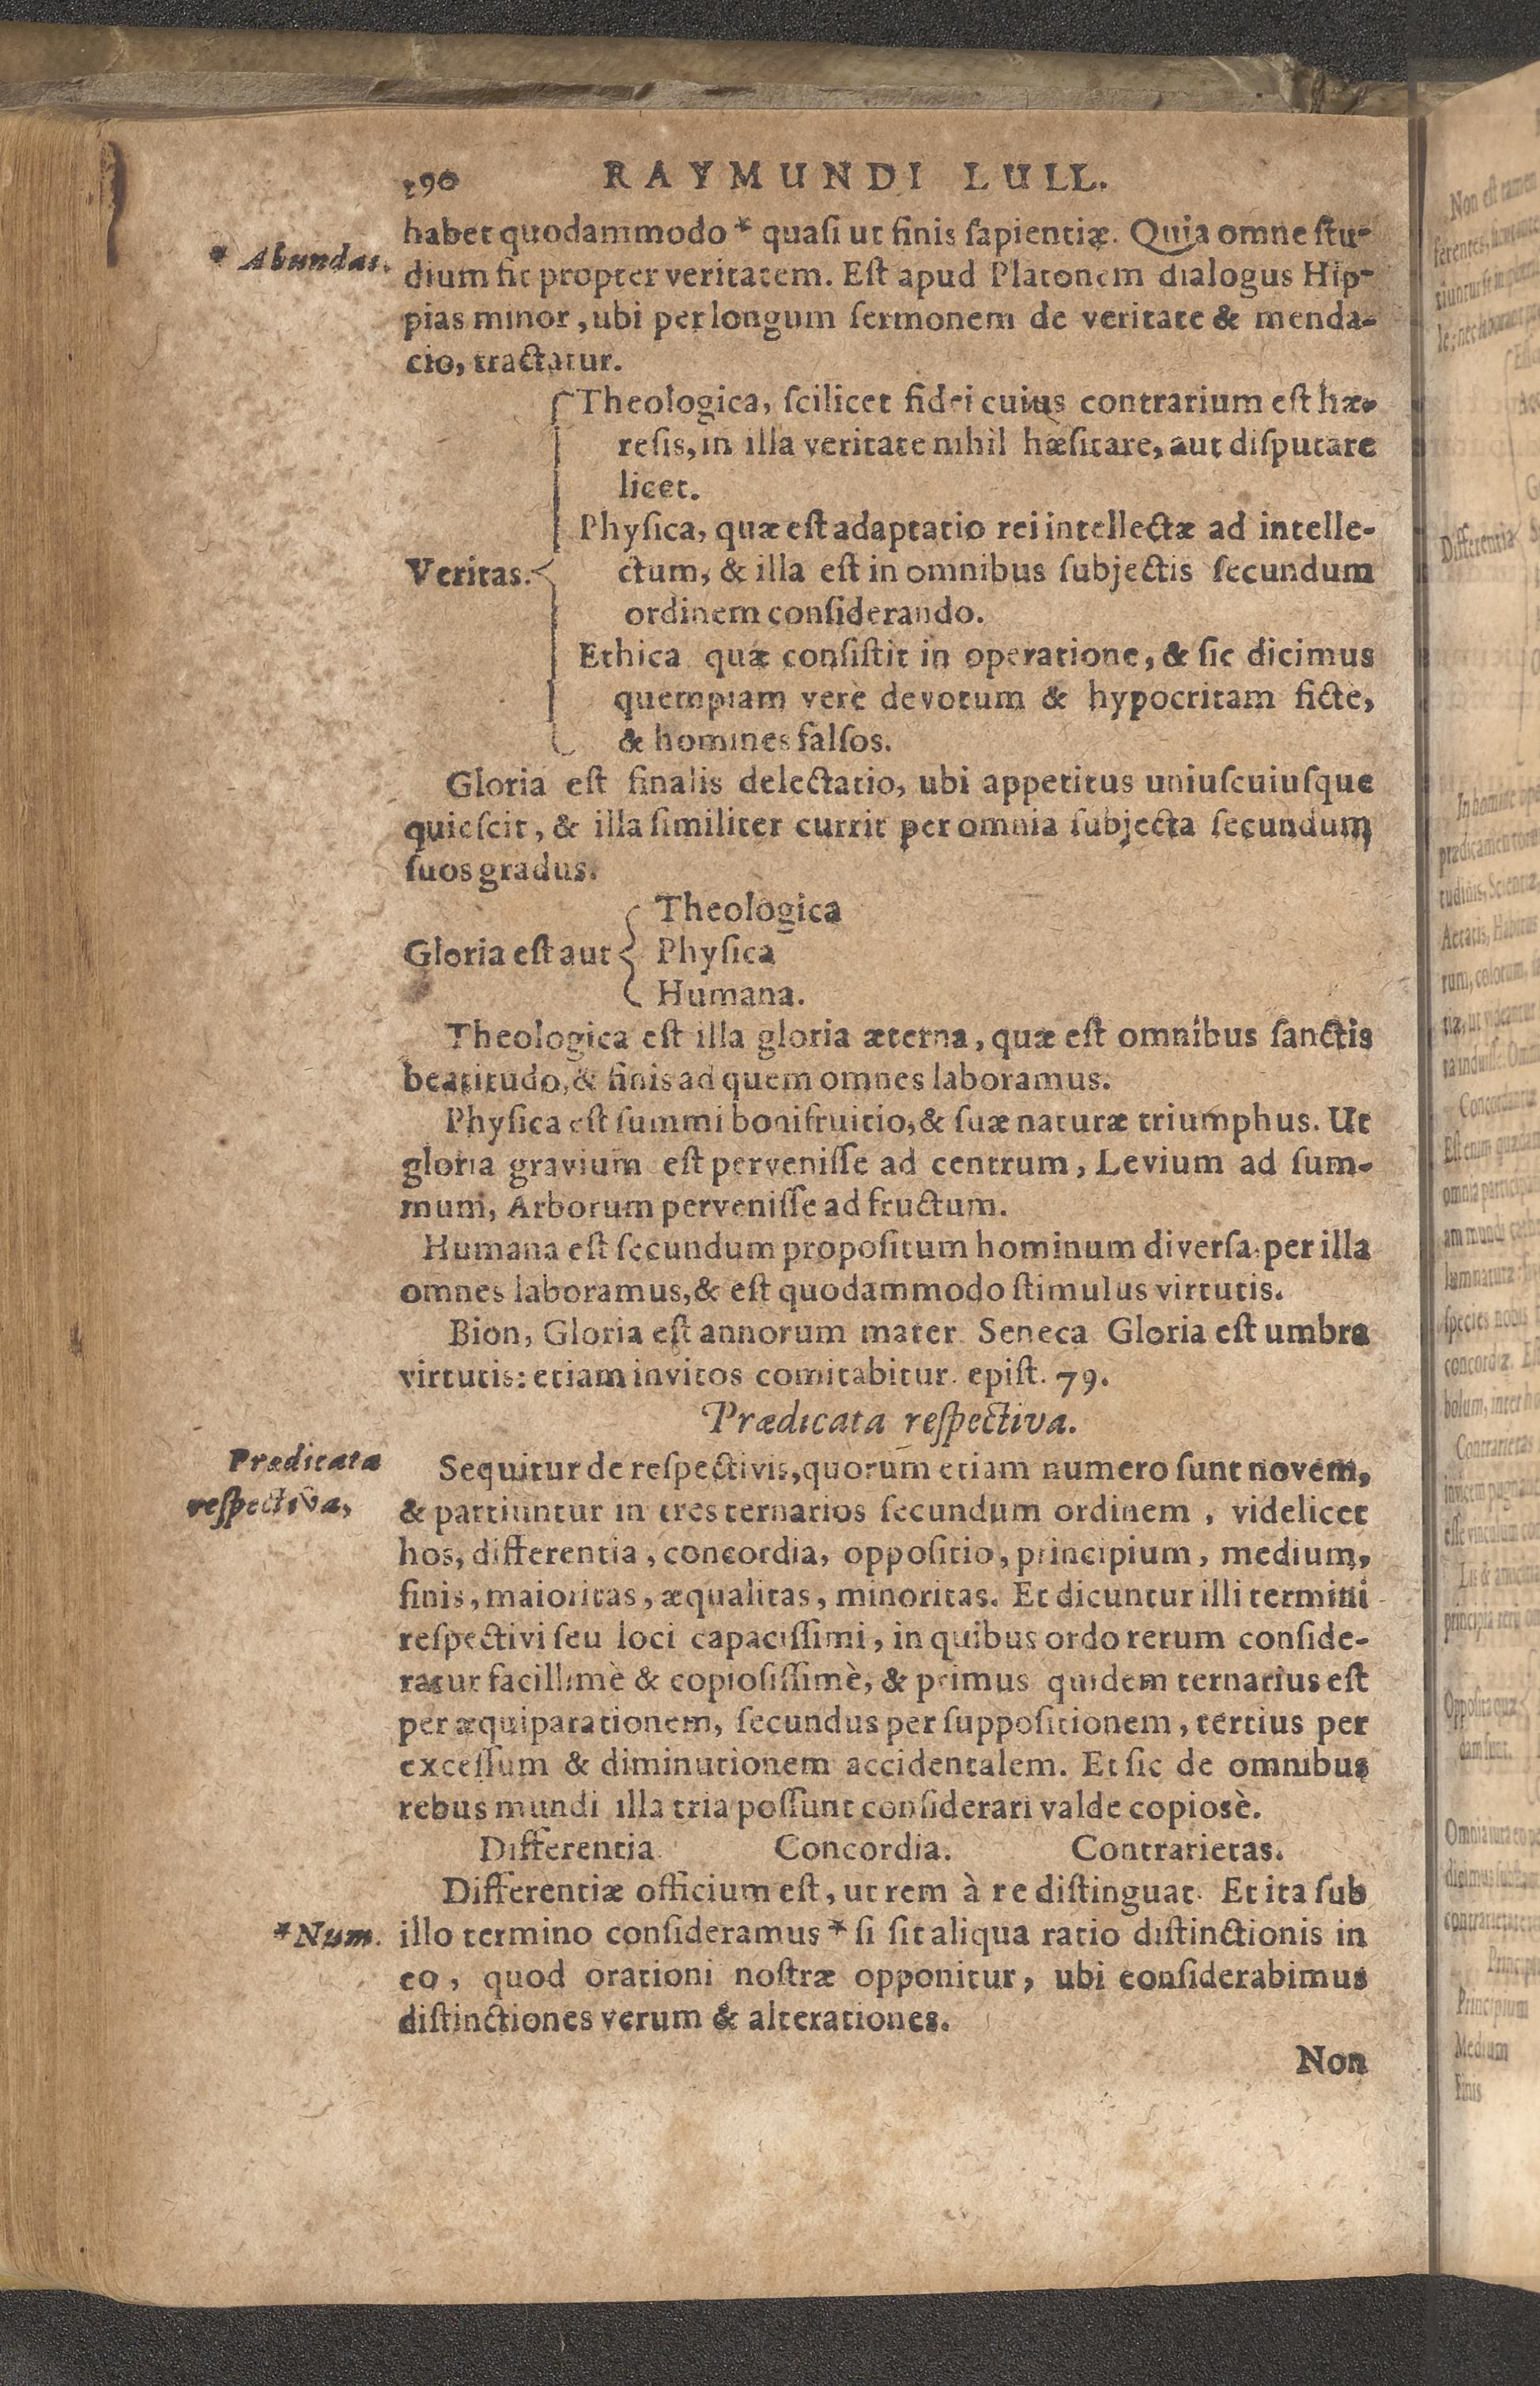 190 RAYMUNDI LULL.
habet quodammodo * quasi ut finis sapientiæ. Quia omne stu-
* Abundat.
dium fit propter veritatem. Est apud Platonem dialogus Hip-
pias minor, ubi per longum sermonem de veritate & menda-
cio, tractatur.
Theologica, scilicet fidei cuius contrarium est hæ-
resis, in illa veritate nihil hæsitare, aut disputare
licet.
Physica, quæ est adaptatio rei intellectæ ad intelle-
Veritas.
ctum, & illa est in omnibus subjectis secundum
ordinem considerando.
Ethica quæ consistit in operatione, & sic dicimus
quempiam verè devotum & hypocritam fictè,
& homines falsos.
Gloria est finalis delectatio, ubi appetitus uniuscuiusque
quiescit, & illa similiter currit per omnia subjecta secundum
suos gradus.
Theologica
Gloria est aut Physica
Humana.
Theologica est illa gloria æterna, quæ est omnibus sanctis
beatitudo, & finis ad quem omnes laboramus.
Physica est summi boni fruitio, & suæ naturæ triumphus. Ut
gloria gravium est pervenisse ad centrum, Levium ad sum-
mum, Arborum pervenisse ad fructum.
Humana est secundum propositum hominum diversa, per illa
omnes laboramus, & est quodammodo stimulus virtutis.
Bion, Gloria est annorum mater. Seneca Gloria est umbra
virtutis: etiam invitos comitabitur. epist. 79.
Prædicata respectiva.
Prædicata
respectiva,
Sequitur de respectivis, quorum etiam numero sunt novem,
& partiuntur in tres ternarios secundum ordinem, videlicet
hos, differentia, concordia, oppositio, principium, medium,
finis, maioritas, æqualitas, minoritas. Et dicuntur illi termini
respectivi seu loci capacissimi, in quibus ordo rerum conside-
ratur facillimè & copiosissimè, & primus quidem ternarius est
per æquiparationem, secundus per suppositionem, tertius per
excessum & diminutionem accidentalem. Et sic de omnibus
rebus mundi illa tria possunt considerari valde copiosè.
Differentia. Concordia. Contrarietas.
Differentiæ officium est, ut rem à re distinguat. Et ita sub
*Num. illo termino consideramus * si sit aliqua ratio distinctionis in
eo, quod orationi nostræ opponitur, ubi considerabimus
distinctiones verum & alterationes.
Non
Non est tamen
Differentia
Principium
Medium
Finis